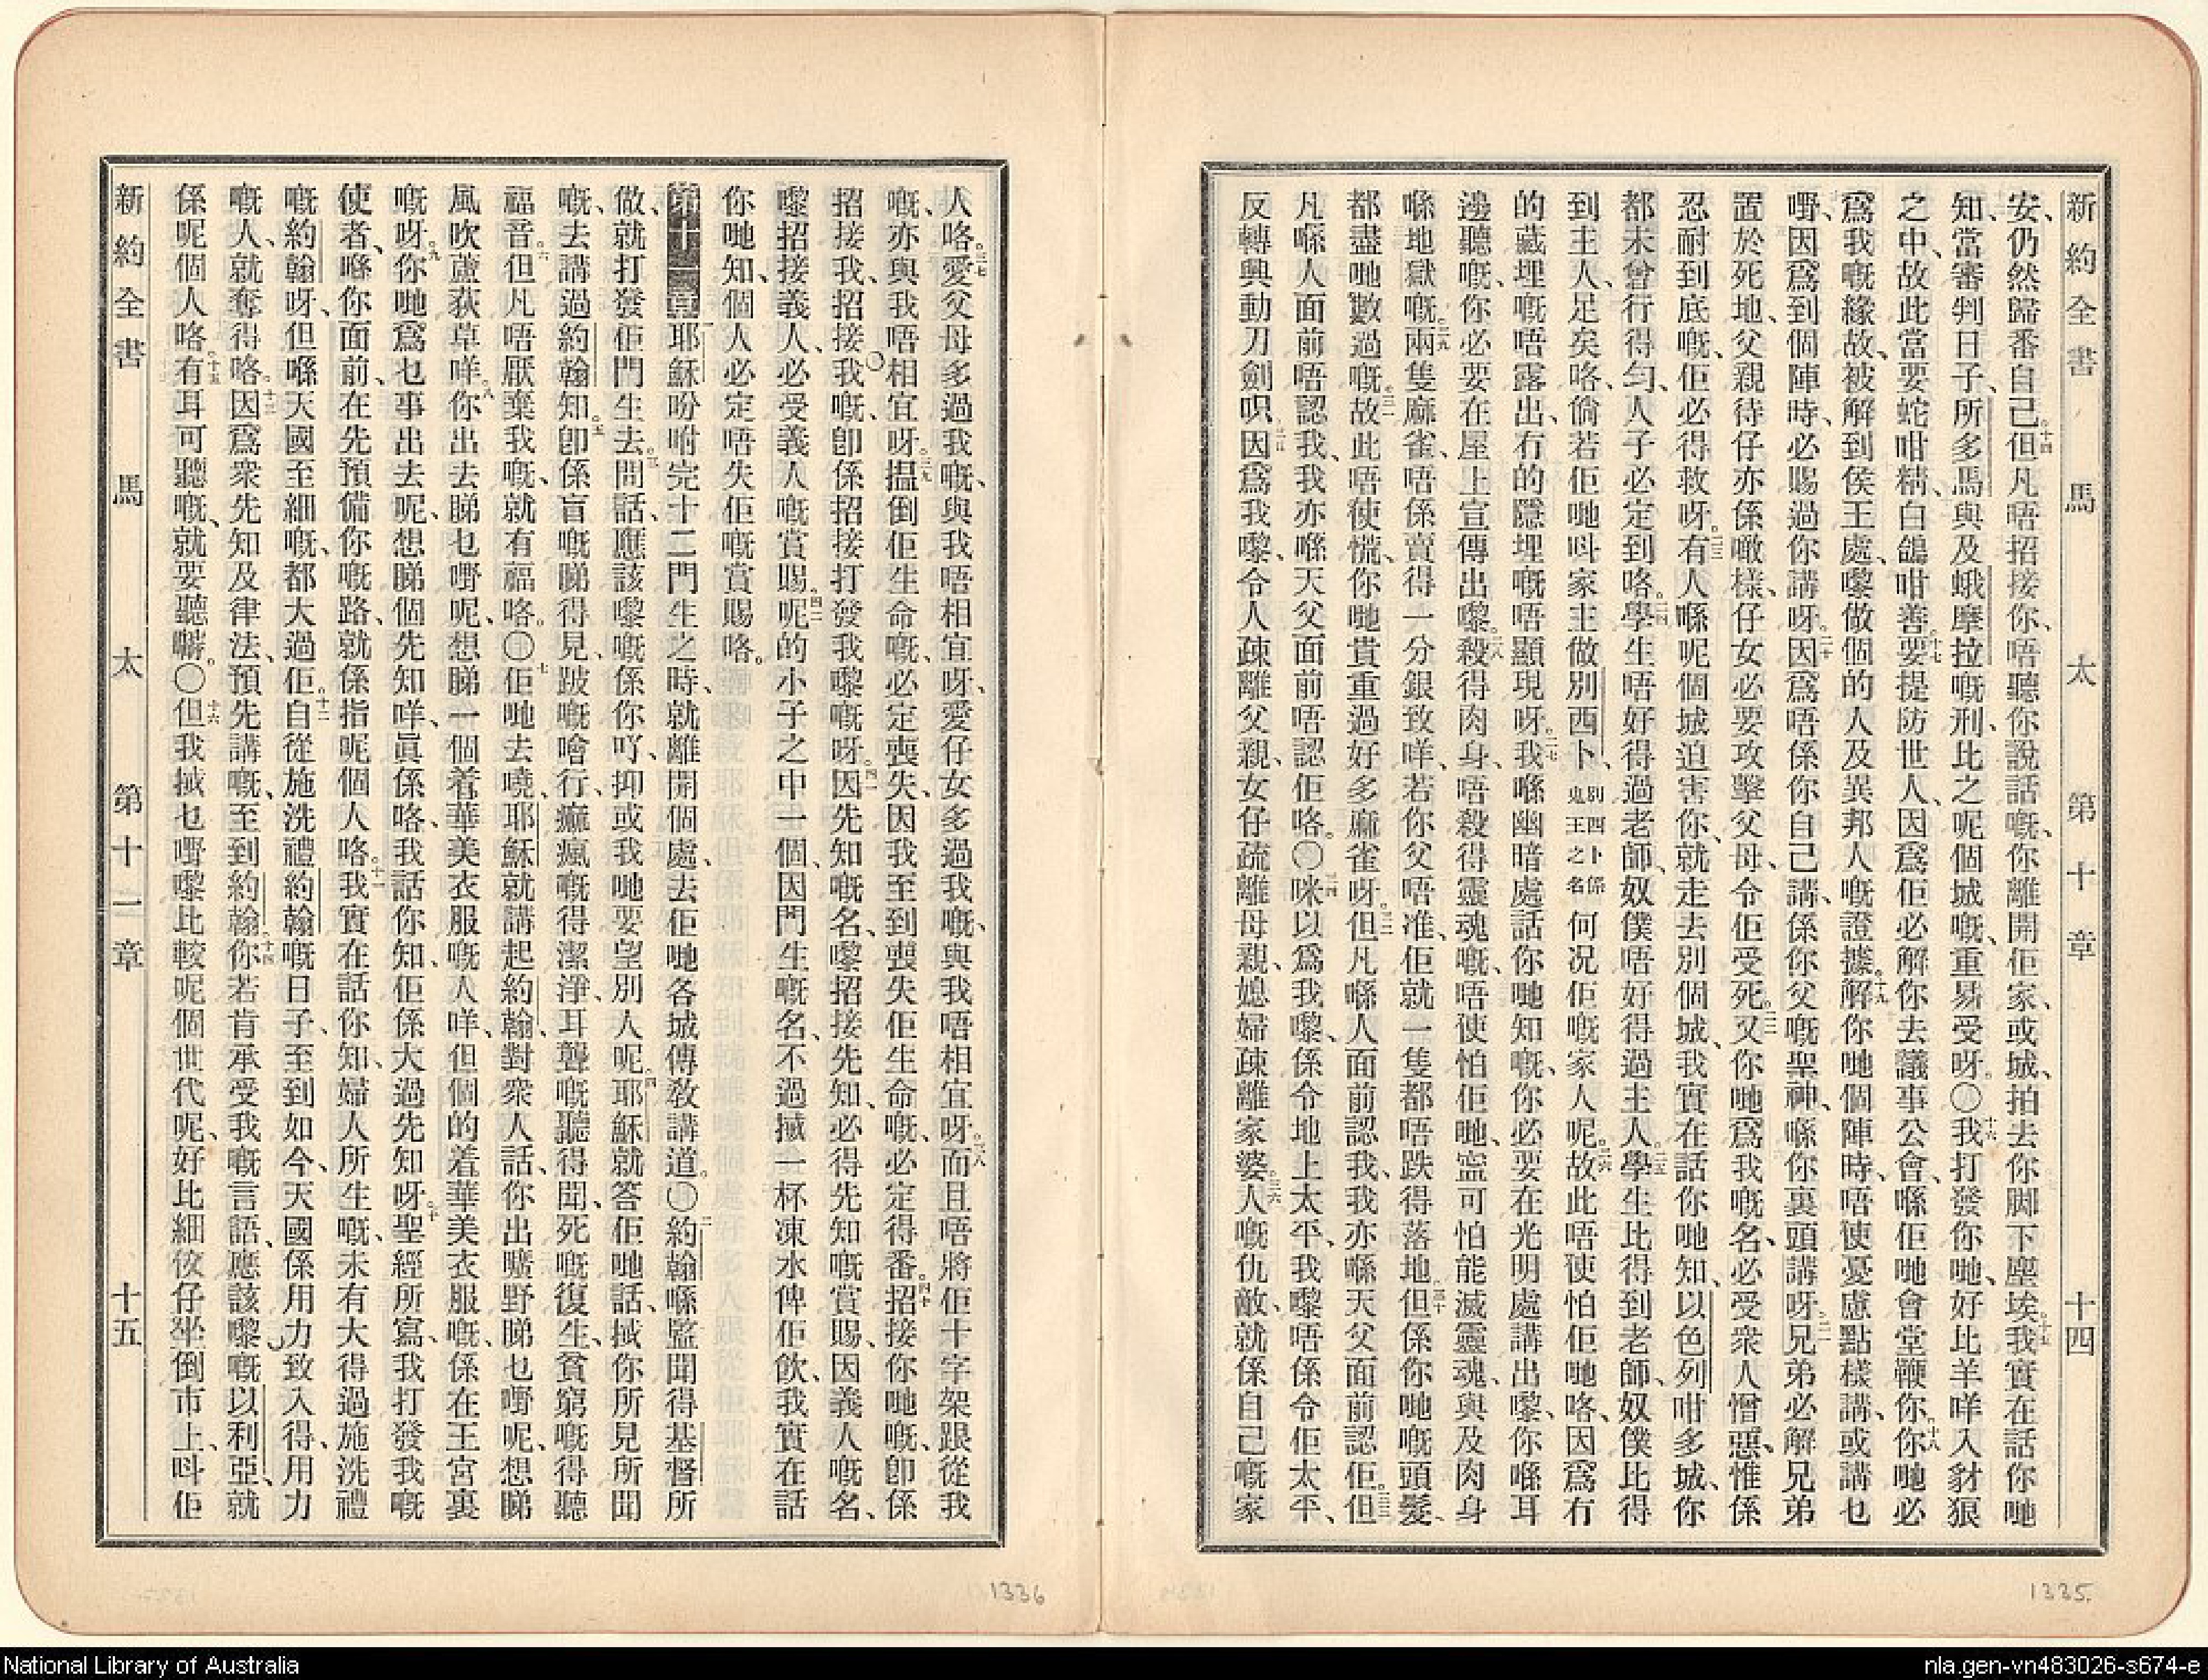 新約全書 馬太 第十章 十四
安、仍然歸番自己。十四但凡唔招接你、唔聽你說話嘅、你離開佢家、或城、拍去你脚下塵埃。十五我實在話你哋
知、當審判日子、所多馬與及蛾摩拉嘅刑、比之呢個城嘅、重易受呀。〇十六我打發你哋、好比羊咩入豺狼
之中、故此當要蛇咁精、白鴿咁善。十七要提防世人、因爲佢必解你去議事公會、喺佢哋會堂鞭你。十八你哋必
爲我嘅緣故、被解到侯王處、嚟做個的人及異邦人嘅證據。十九解你哋個陣時、唔使憂慮點樣講、或講乜
嘢、因爲到個陣時、必賜過你講呀。二十因爲唔係你自己講、係你父嘅聖神、喺你裏頭講呀。二一兄弟必解兄弟
置於死地、父親待仔亦係噉樣、仔女必要攻擊父母、令佢受死。二二又你哋爲我嘅名、必受衆人憎惡、惟係
忍耐到底嘅、佢必得救呀。二三有人喺呢個城迫害你、就走去別個城、我實在話你哋知、以色列咁多城、你
都未曾行得匀、人子必定到咯。二四學生唔好得過老師、奴僕唔好得過主人。二五學生比得到老師、奴僕比得
到主人、足矣咯、倘若佢哋呌家主做別西卜、別西卜係鬼王之名 何况佢嘅家人呢。二六故此唔使怕佢哋咯、因爲有
的藏埋嘅唔露出、冇的隱埋嘅唔顯現呀。二七我喺幽暗處話你哋知嘅、你必要在光明處講出嚟、你喺耳
邊聽嘅、你必要在屋上宣傳出嚟。二八殺得肉身、唔殺得靈魂嘅、唔使怕佢哋、寍可怕能滅靈魂、與及肉身
喺地獄嘅。二九兩隻麻雀、唔係賣得一分銀致咩、若你父唔准、佢就一隻都唔跌得落地。三十但係你哋嘅頭髮、
都盡哋數過嘅。三一故此唔使慌、你哋貴重過好多麻雀呀。三二但凡喺人面前認我、我亦喺天父面前認佢。三三但
凡喺人面前唔認我、我亦喺天父面前唔認佢咯。〇三四咪以爲我嚟、係令地上太平、我嚟唔係令佢太平、
反轉興動刀劍呮。三五因爲我嚟、令人疎離父親、女仔疏離母親、媳婦疎離家婆。三六人嘅仇敵、就係自己嘅家
人咯。三七愛父母多過我嘅、與我唔相宜呀、愛仔女多過我嘅、與我唔相宜呀。三八而且唔將佢十字架跟從我
嘅、亦與我唔相宜呀。三九揾倒佢生命嘅、必定喪失、因我至到喪失佢生命嘅、必定得番。四十招接你哋嘅、卽係
招接我、招接我嘅、卽係招接打發我嚟嘅呀。四一因先知嘅名、嚟招接先知、必得先知嘅賞賜、因義人嘅名、
嚟招接義人、必受義人嘅賞賜。四二呢的小子之中一個、因門生嘅名、不過搣一杯凍水俾佢飲、我實在話
你哋知、個人必定唔失佢嘅賞賜咯。
第十一章 一耶穌吩咐完十二門生之時、就離開個處、去佢哋各城傳敎講道。〇二約翰喺監聞得基督所
做、就打發佢門生去。三問話、應該嚟嘅係你吖、抑或我哋要望別人呢。四耶穌就答佢哋話、㧾你所見所聞
嘅、去講過約翰知。五卽係盲嘅睇得見、跛嘅噲行、癲瘋嘅得潔淨、耳聾嘅聽得聞、死嘅復生、貧窮嘅得聽
福音。六但凡唔厭棄我嘅、就有福咯。〇七佢哋去嘵、耶穌就講起約翰、對衆人話、你出曠野睇乜嘢呢、想睇
風吹蘆荻草咩。八你出去睇乜嘢呢、想睇一個着華美衣服嘅人咩、但個的着華美衣服嘅、係在王宮裏
嘅呀。九你哋爲乜事出去呢、想睇個先知咩、眞係咯、我話你知、佢係大過先知呀。十聖經所寫、我打發我嘅
使者、喺你面前、在先預備你嘅路、就係指呢個人咯。十一我實在話你知、婦人所生嘅、未有大得過施洗禮
嘅約翰呀、但喺天國至細嘅、都大過佢。十二自從施洗禮約翰嘅日子、至到如今、天國係用力致入得、用力
嘅人、就奪得咯。十三因爲衆先知及律法、預先講嘅、至到約翰。十四你若肯承受我嘅言語、應該嚟嘅以利亞、就
係呢個人咯。十五有耳可聽嘅、就要聽嚹。〇十六但我搣乜嘢嚟比較呢個世代呢、好比細佼仔坐倒市上、呌佢
新約全書 馬太 第十一章 十五
1336
1335
National Library of Australia
nla.gen-vn483026-s674-e